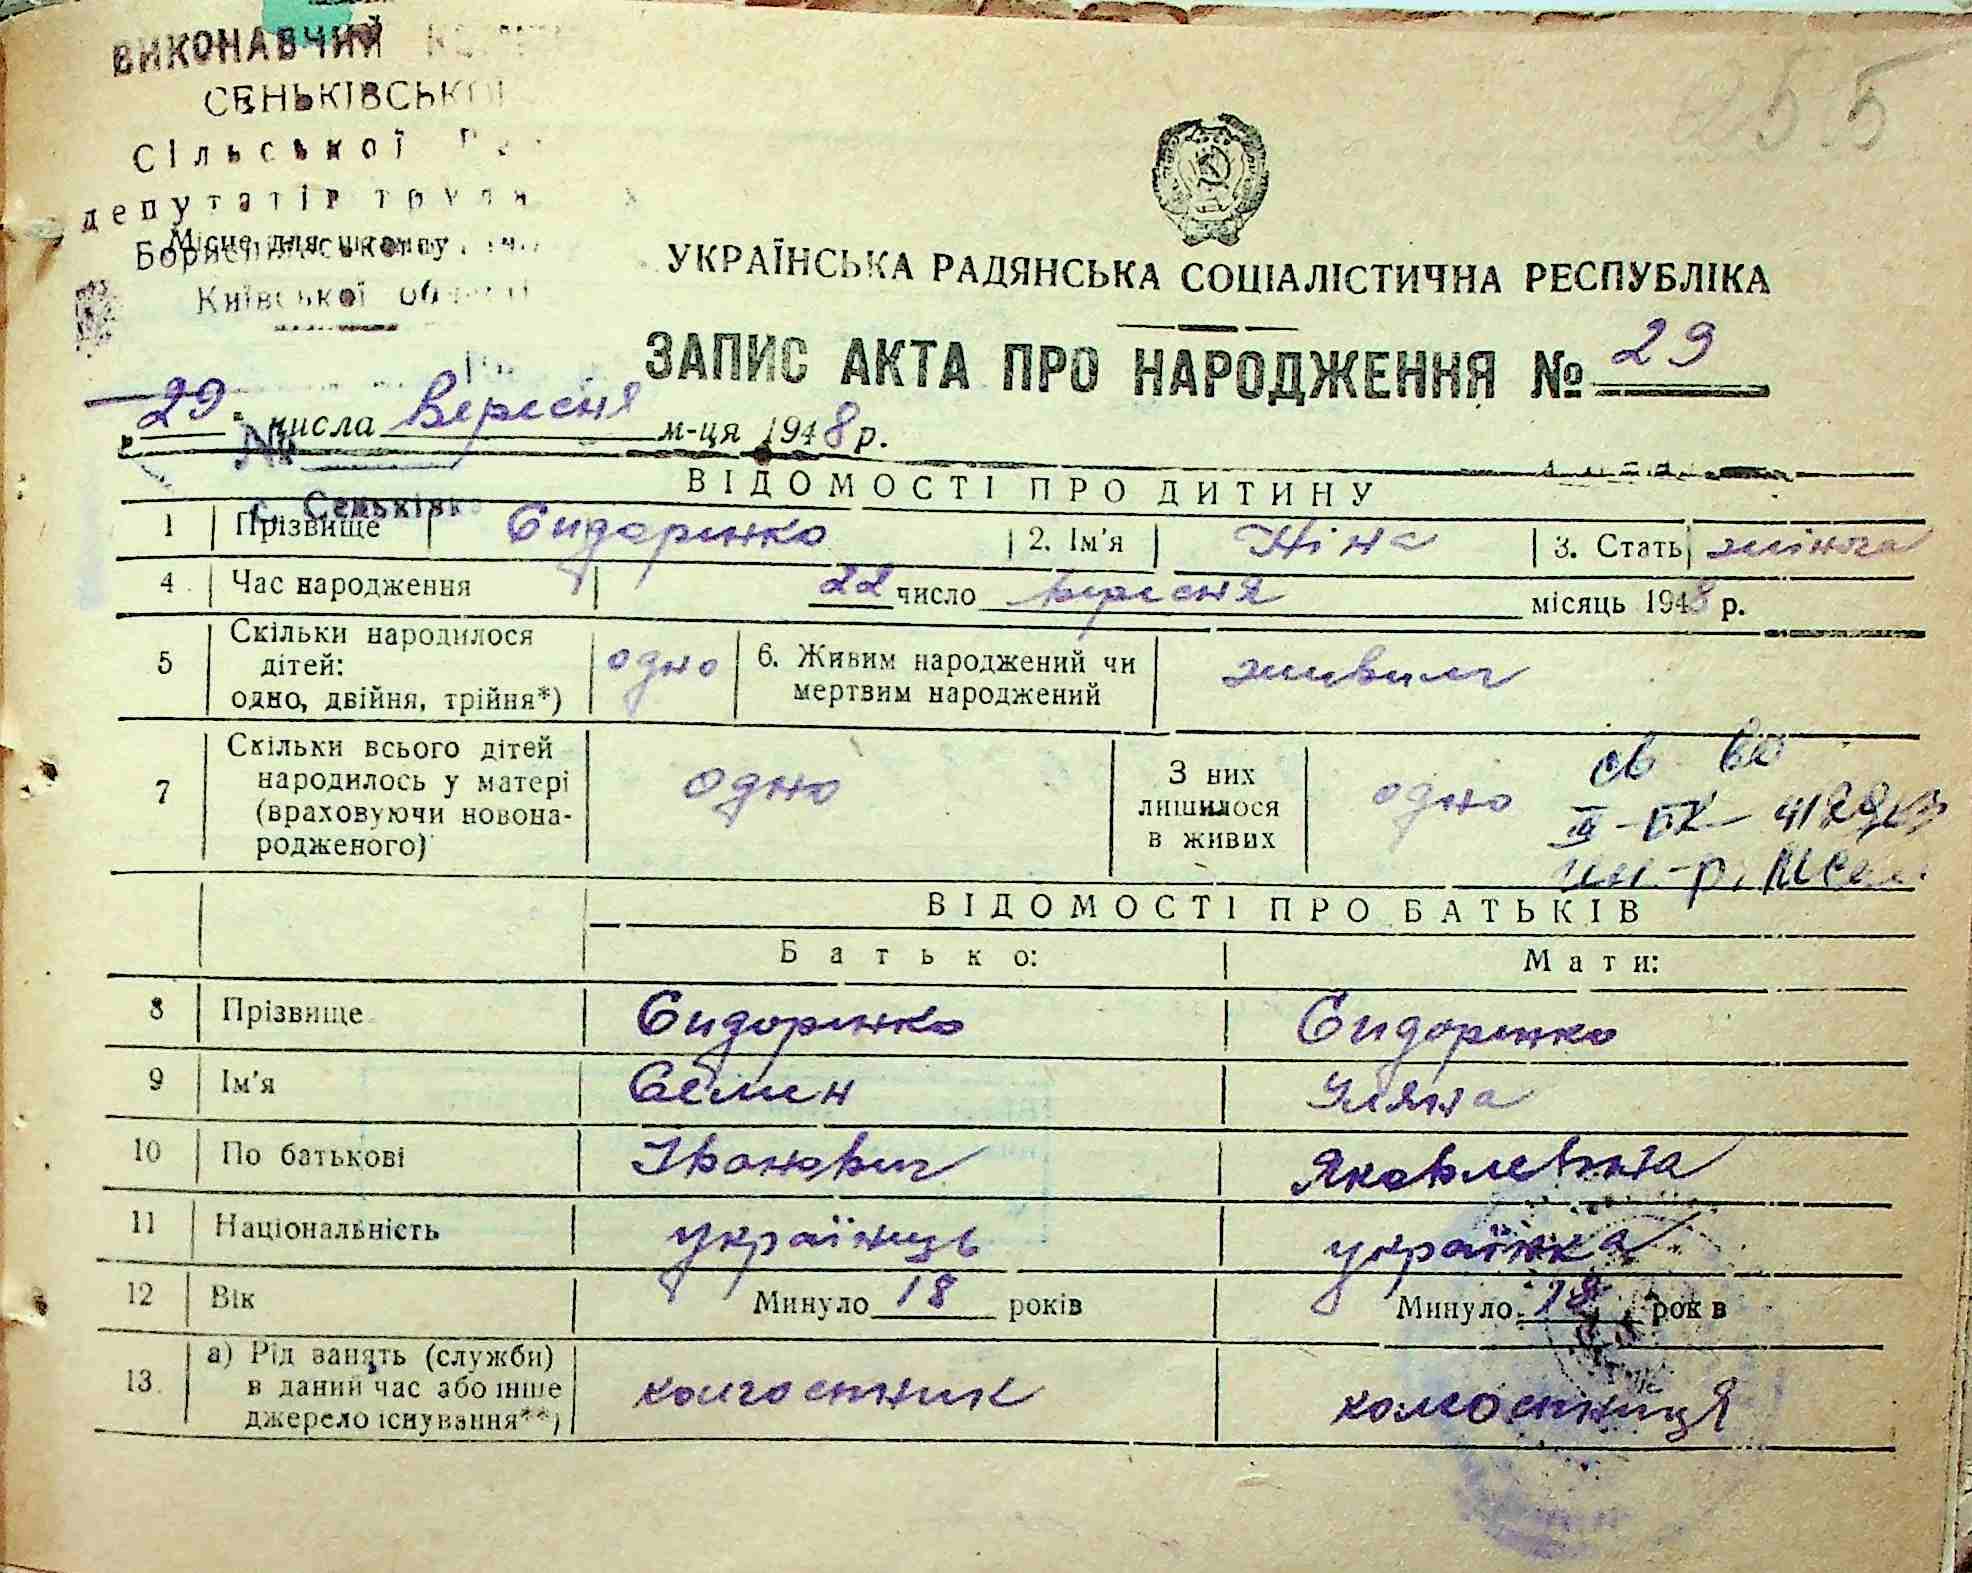 ВИКОНАВЧИЙ
СЕНЬКІВСЬКОЇ
Сільської
депутатів
Місце для штампу
Бориспільського
Київської області
255
УКРАЇНСЬКА РАДЯНСЬКА СОЦІАЛІСТИЧНА РЕСПУБЛІКА
ЗАПИС АКТА ПРО НАРОДЖЕННЯ № 29
„29" числа Вересня м-ця 1948 р.
№
с. Сеньківка
ВІДОМОСТІ ПРО ДИТИНУ
1 Прізвище Сидоренко 2. Ім'я Ніна 3. Стать жіноча
4 Час народження 22 число вересня місяць 1948 р.
5 Скільки народилося дітей: одно, двійня, трійня*) одно 6. Живим народжений чи мертвим народжений живим
7 Скільки всього дітей народилось у матері (враховуючи новонародженого) одно З них лишилося в живих одно
св во
III-БК
ВІДОМОСТІ ПРО БАТЬКІВ
Батько: Мати:
8 Прізвище Сидоренко Сидоренко
9 Ім'я Семен Уляна
10 По батькові Іванович Яковлевна
11 Національність українець українка
12 Вік Минуло 18 років Минуло 18 років
13 а) Рід занять (служби) в даний час або інше джерело існування**) колгоспник колгоспниця